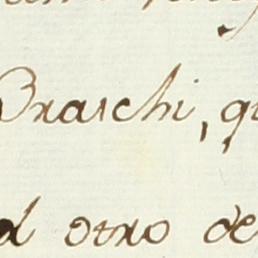 Braschi, qu
d otro de